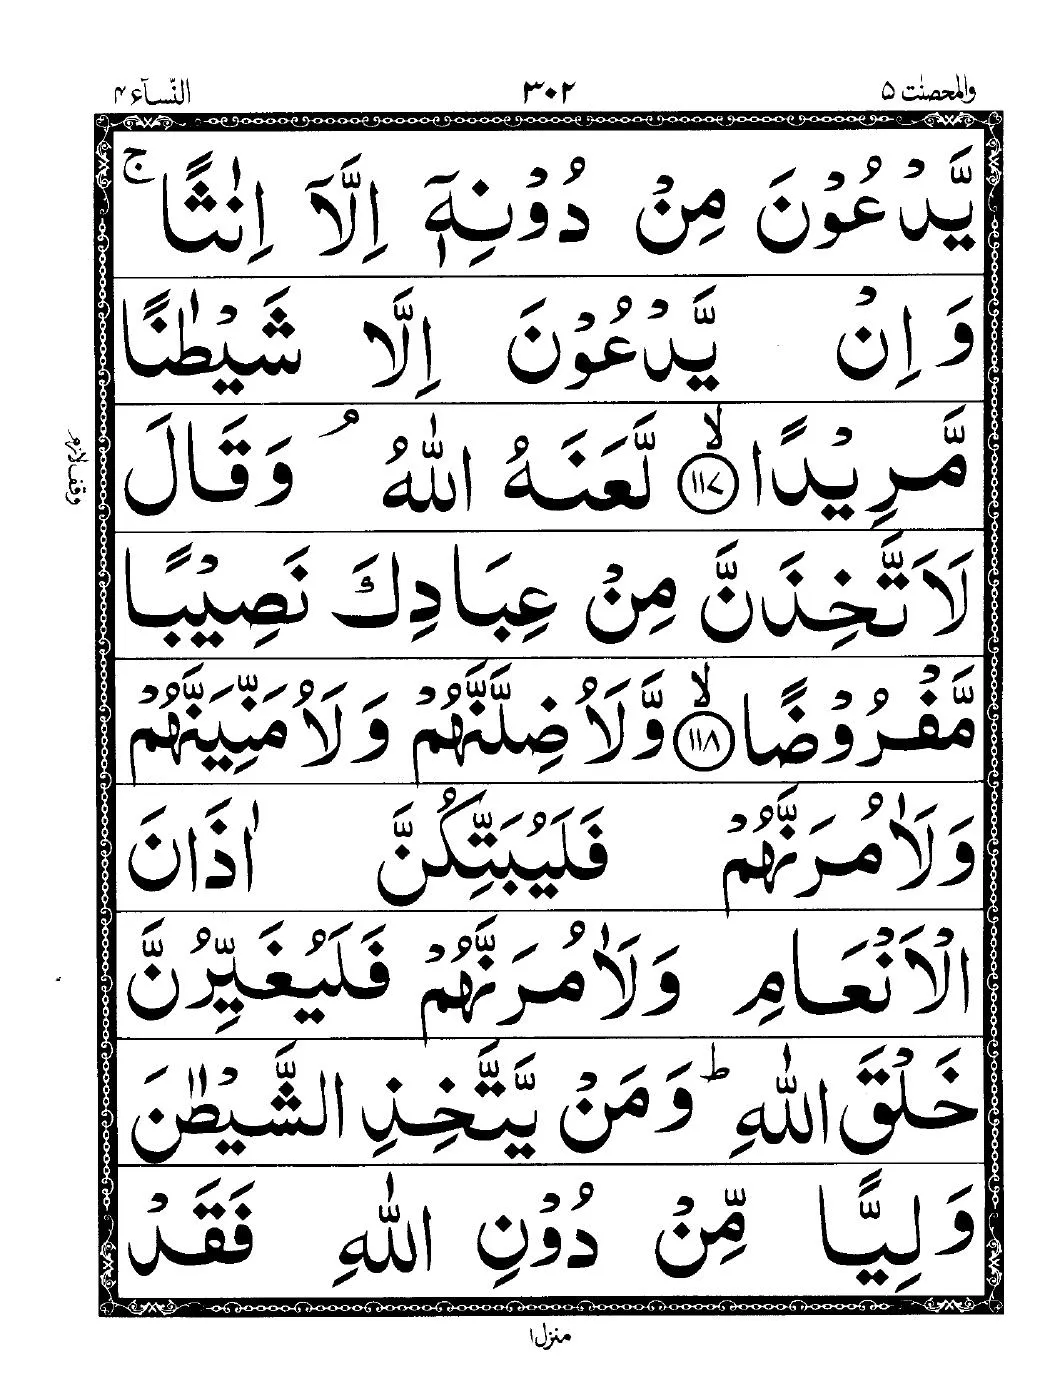 والمحصنٰت ۵ ۳۰۲ النّسآء ۴
يَّدْعُوْنَ مِنْ دُوْنِهٖۤ اِلَّاۤ اِنٰثًا ۚ
وَاِنْ يَّدْعُوْنَ اِلَّا شَيْطٰنًا
مَّرِيْدًا ۙ﴿۱۱۷﴾ لَّعَنَهُ اللّٰهُ ۘ وَقَالَ
لَاَتَّخِذَنَّ مِنْ عِبَادِكَ نَصِيْبًا
مَّفْرُوْضًا ۙ﴿۱۱۸﴾ وَّلَاُضِلَّنَّهُمْ وَلَاُمَنِّيَنَّهُمْ
وَلَاٰمُرَنَّهُمْ فَلَيُبَتِّكُنَّ اٰذَانَ
الْاَنْعَامِ وَلَاٰمُرَنَّهُمْ فَلَيُغَيِّرُنَّ
خَلْقَ اللّٰهِ ؕ وَمَنْ يَّتَّخِذِ الشَّيْطٰنَ
وَلِيًّا مِّنْ دُوْنِ اللّٰهِ فَقَدْ
وقف لازم
منزل ۱